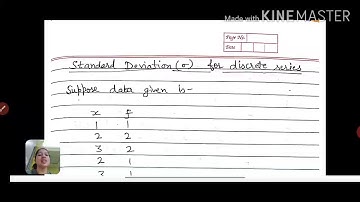 Made with KINEMASTER
Page No.
Date
Standard Deviation (σ) for discrete series
Suppose data given is-
x f
1 1
2 2
3 2
2 1